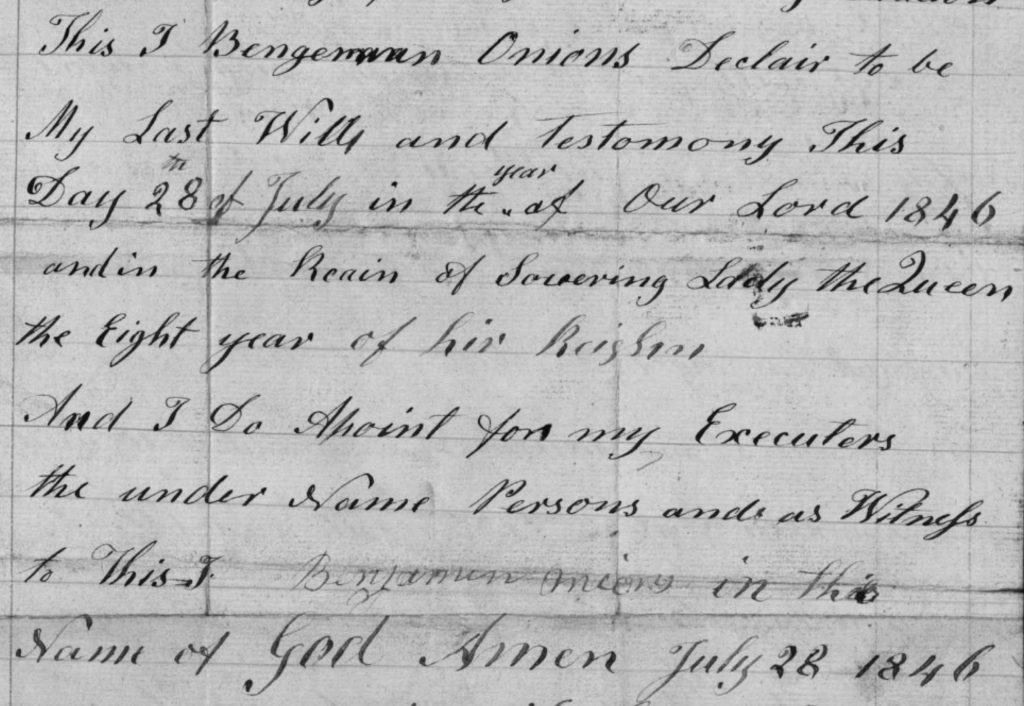 This I Bengeman Onions Declair to be
My Last Will and Testomony This
Day 28th of July in the year of Our Lord 1846
and in the Reain of Sovering Lady the Queen
the Eight year of hir Reighn
And I Do Apoint for my Executers
the under Name Persons and as Witness
to This I Benjamen Onions in the
Name of God Amen July 28 1846